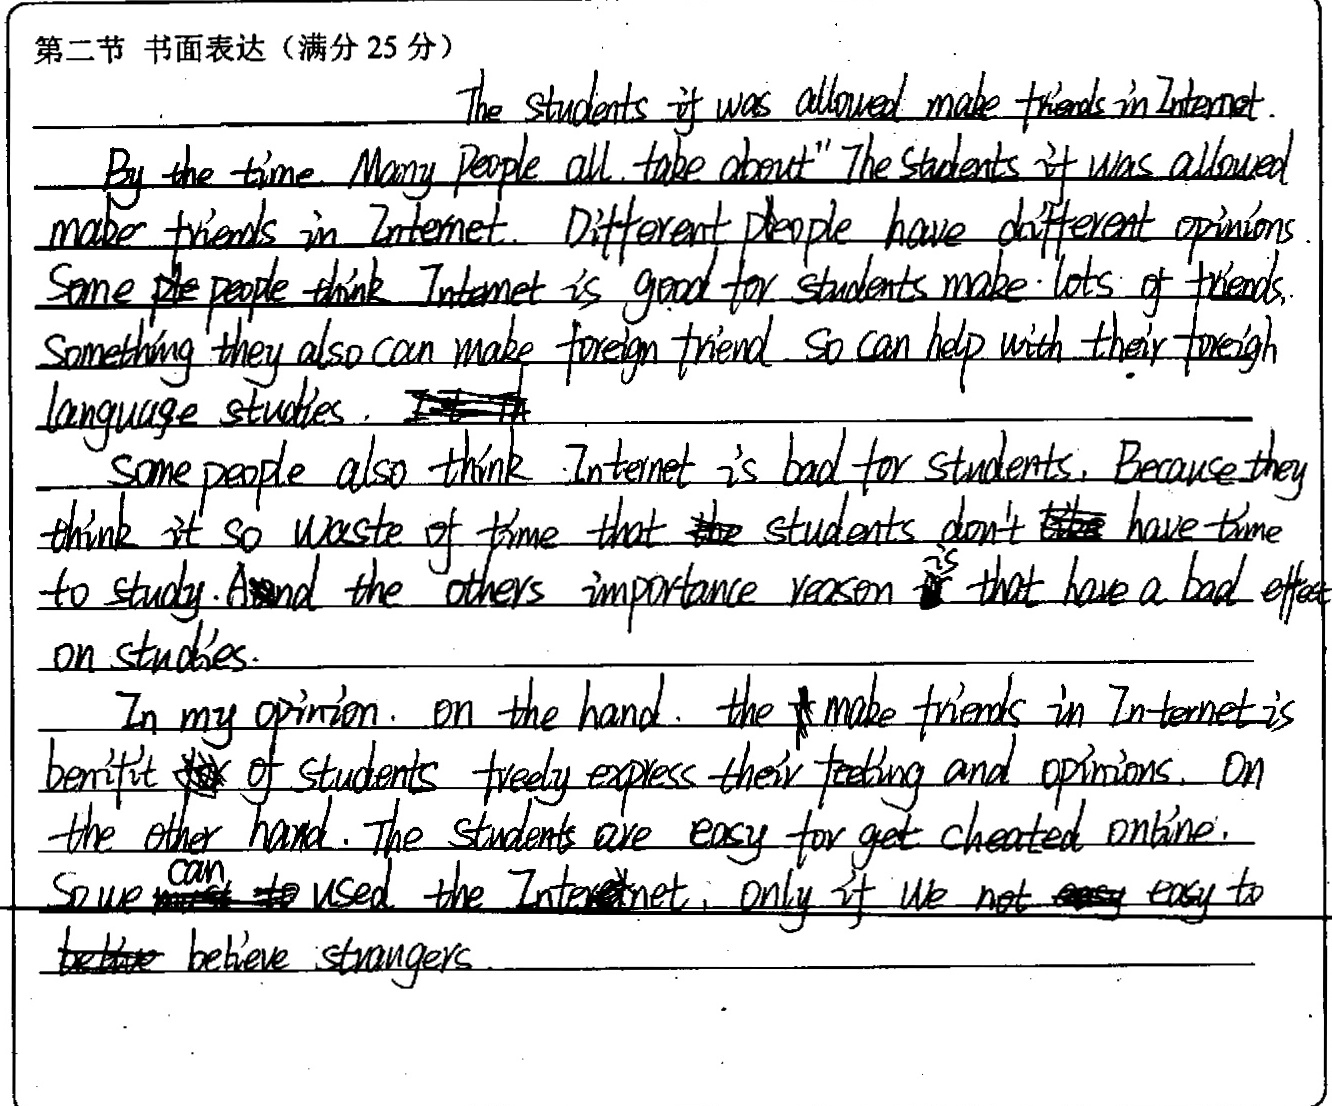 第二节 书面表达（满分 25 分）
The students if was allowed make friends in Internet.
By the time. Many people all take about" The students if was allowed
make friends in Internet. Different pleople have different opinions.
Some people think Internet is good for students make lots of friends.
Something they also can make foreign friend so can help with their foreigh
language studies.
Some people also think Internet is bad for students. Because they
think it so waste of time that students don't have time
to study. And the others importance reason is that have a bad effect
on studies.
In my opinion. on the hand. the make friends in Internet is
benifit of students freely express their feeling and opinions. On
the other hand. The students are easy for get cheated online.
So we can used the Internet, only if we not easy to
believe strangers.